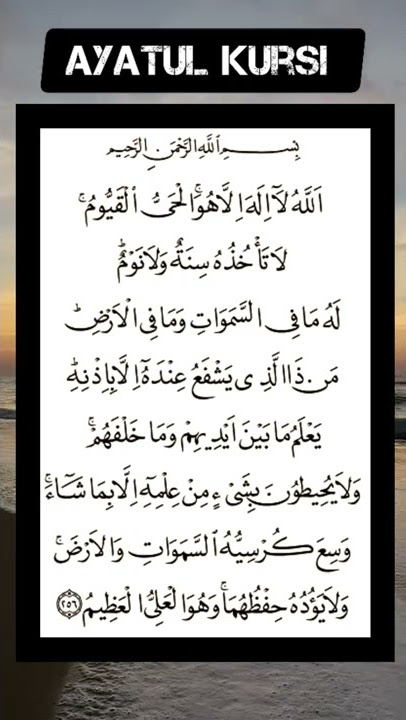 AYATUL KURSI
بِسْمِ اللَّهِ الرَّحْمَٰنِ الرَّحِيمِ
اَللّٰهُ لَآ اِلٰهَ اِلَّا هُوَۚ اَلْحَىُّ الْقَيُّومُۚ
لَا تَأْخُذُهُ سِنَةٌ وَلَا نَوْمٌۜ
لَهُ مَا فِى السَّمٰوَاتِ وَمَا فِى الْاَرْضِۜ
مَنْ ذَا الَّذِى يَشْفَعُ عِنْدَهُٓ اِلَّا بِاِذْنِهِۜ
يَعْلَمُ مَا بَيْنَ اَيْدِيهِمْ وَمَا خَلْفَهُمْۚ
وَلَا يُحِيطُونَ بِشَىْءٍ مِنْ عِلْمِهِٓ اِلَّا بِمَا شَآءَۚ
وَسِعَ كُرْسِيُّهُ السَّمٰوَاتِ وَالْاَرْضَۚ
وَلَا يَؤُدُهُ حِفْظُهُمَاۚ وَهُوَ الْعَلِىُّ الْعَظِيمُ ﴿٢٥٦﴾